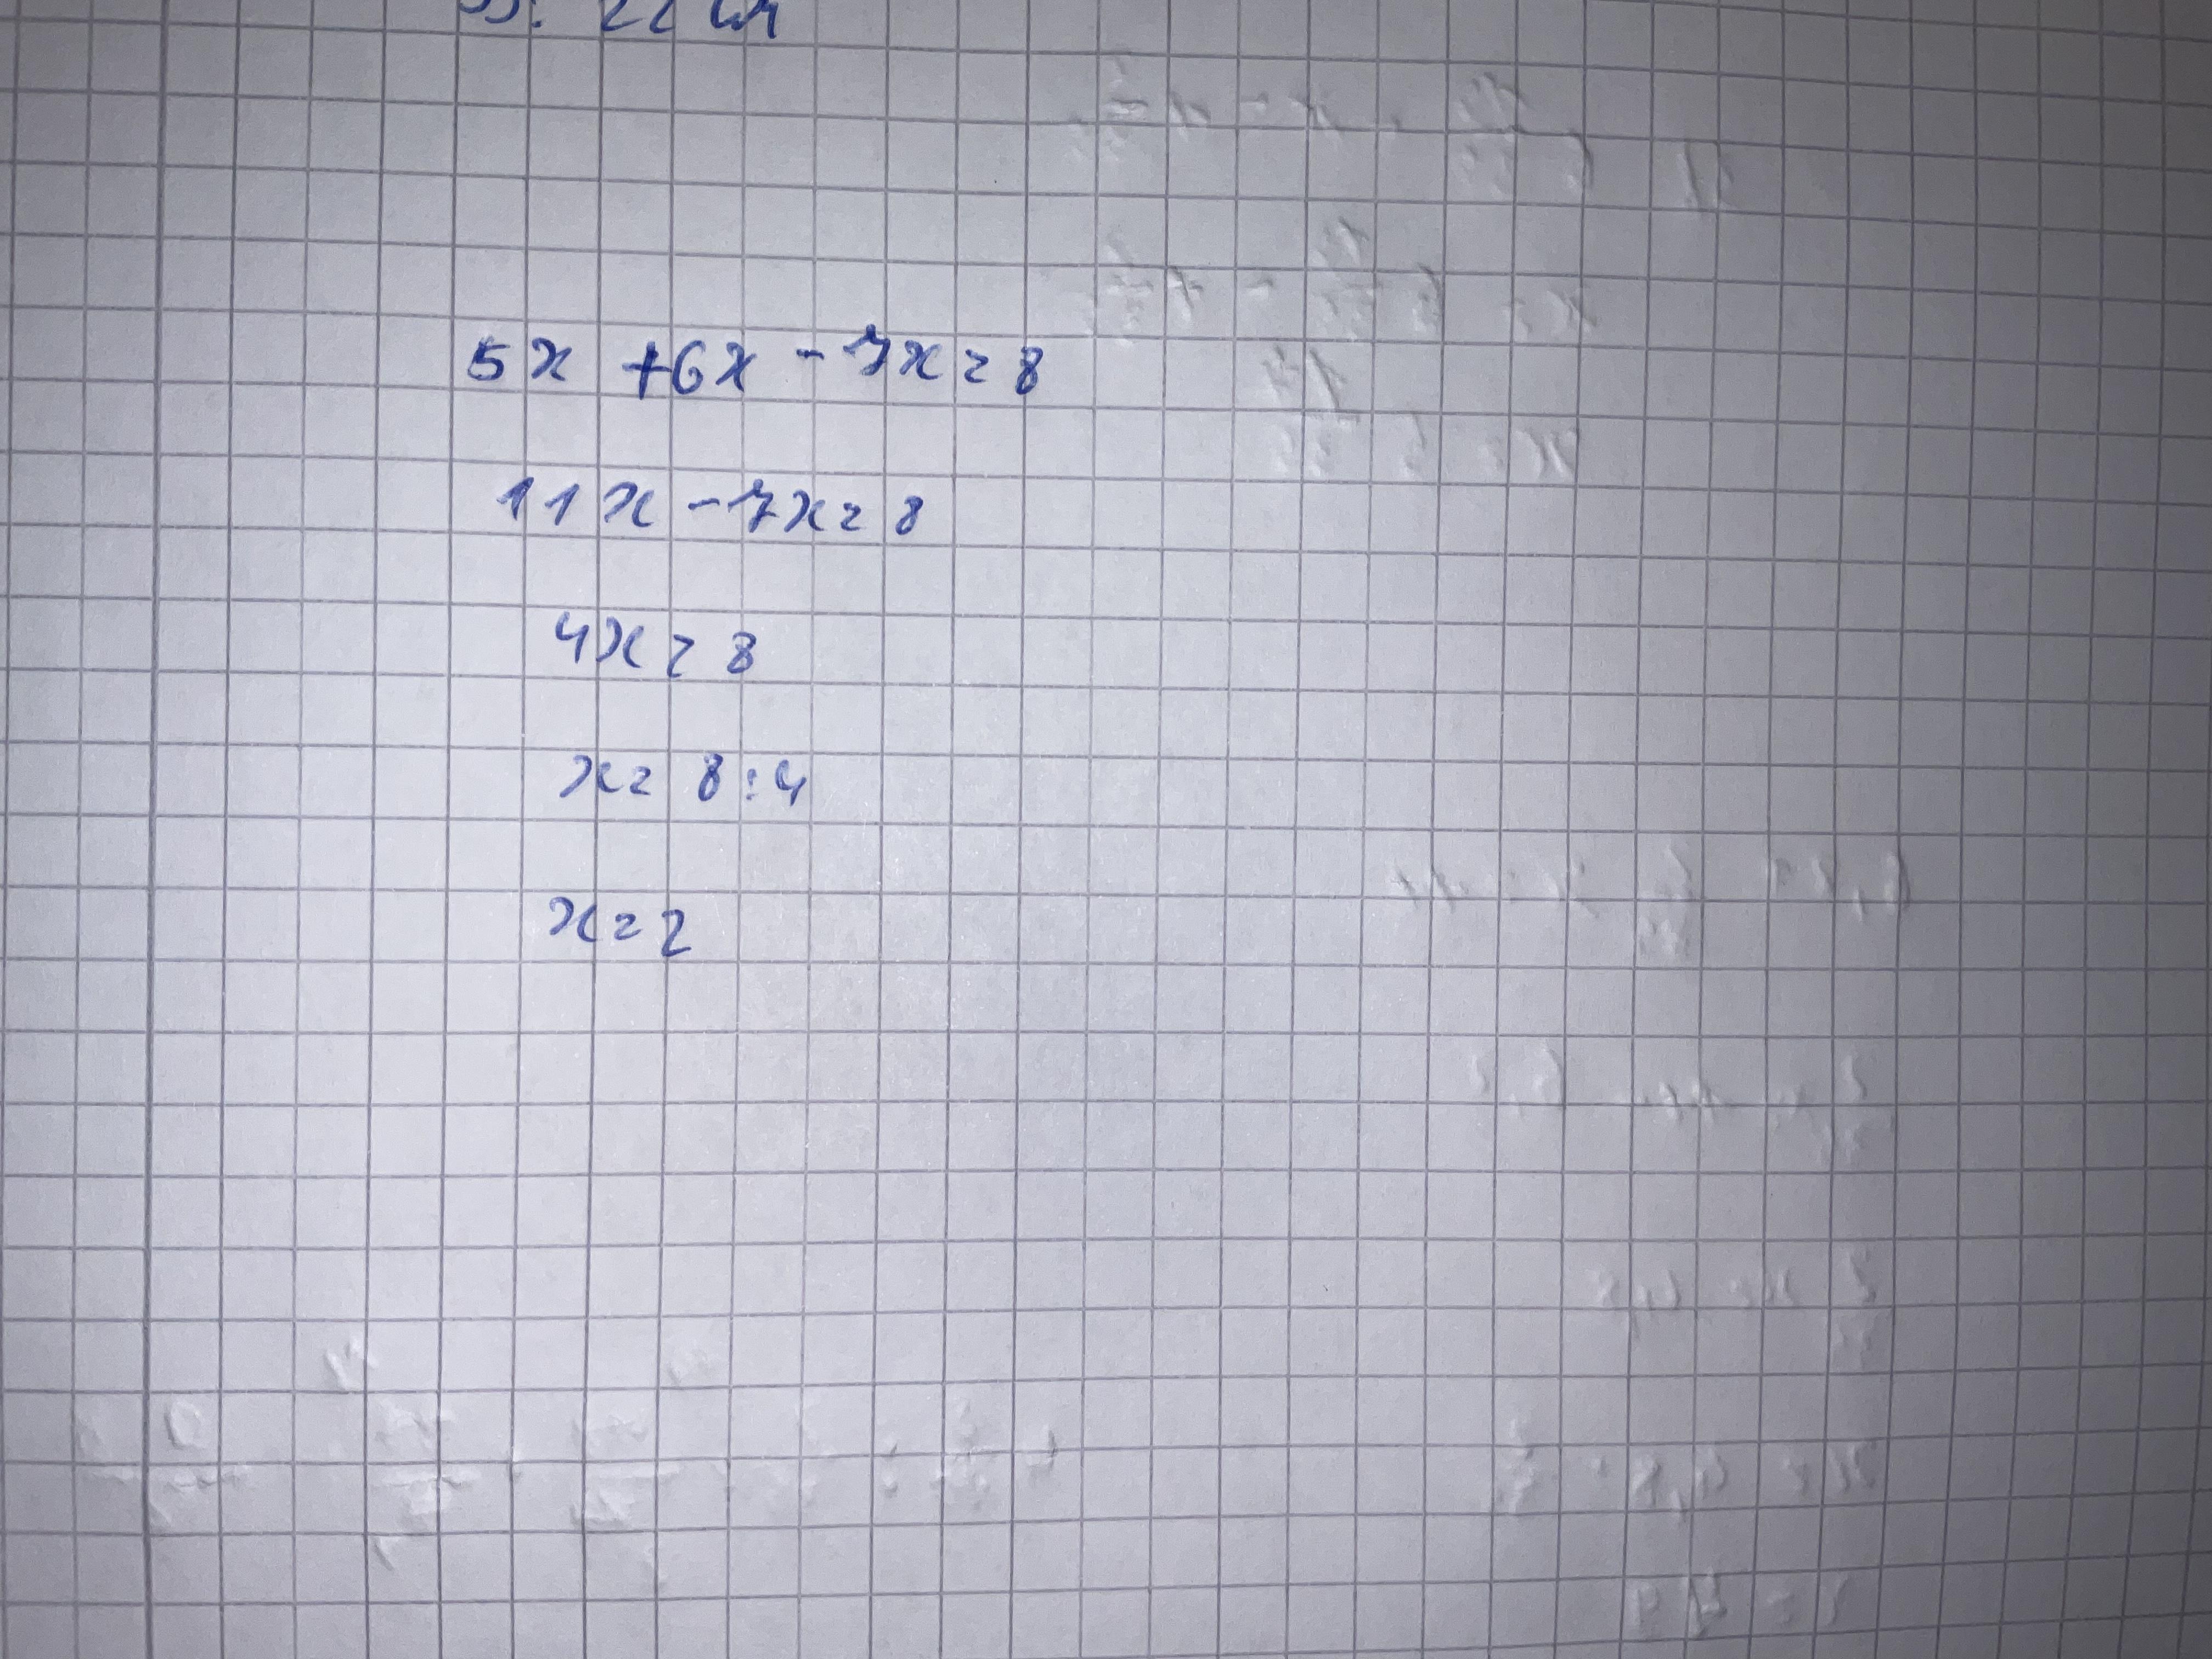 5x + 6x - 7x = 8
11x - 7x = 8
4x = 8
x = 8 : 4
x = 2